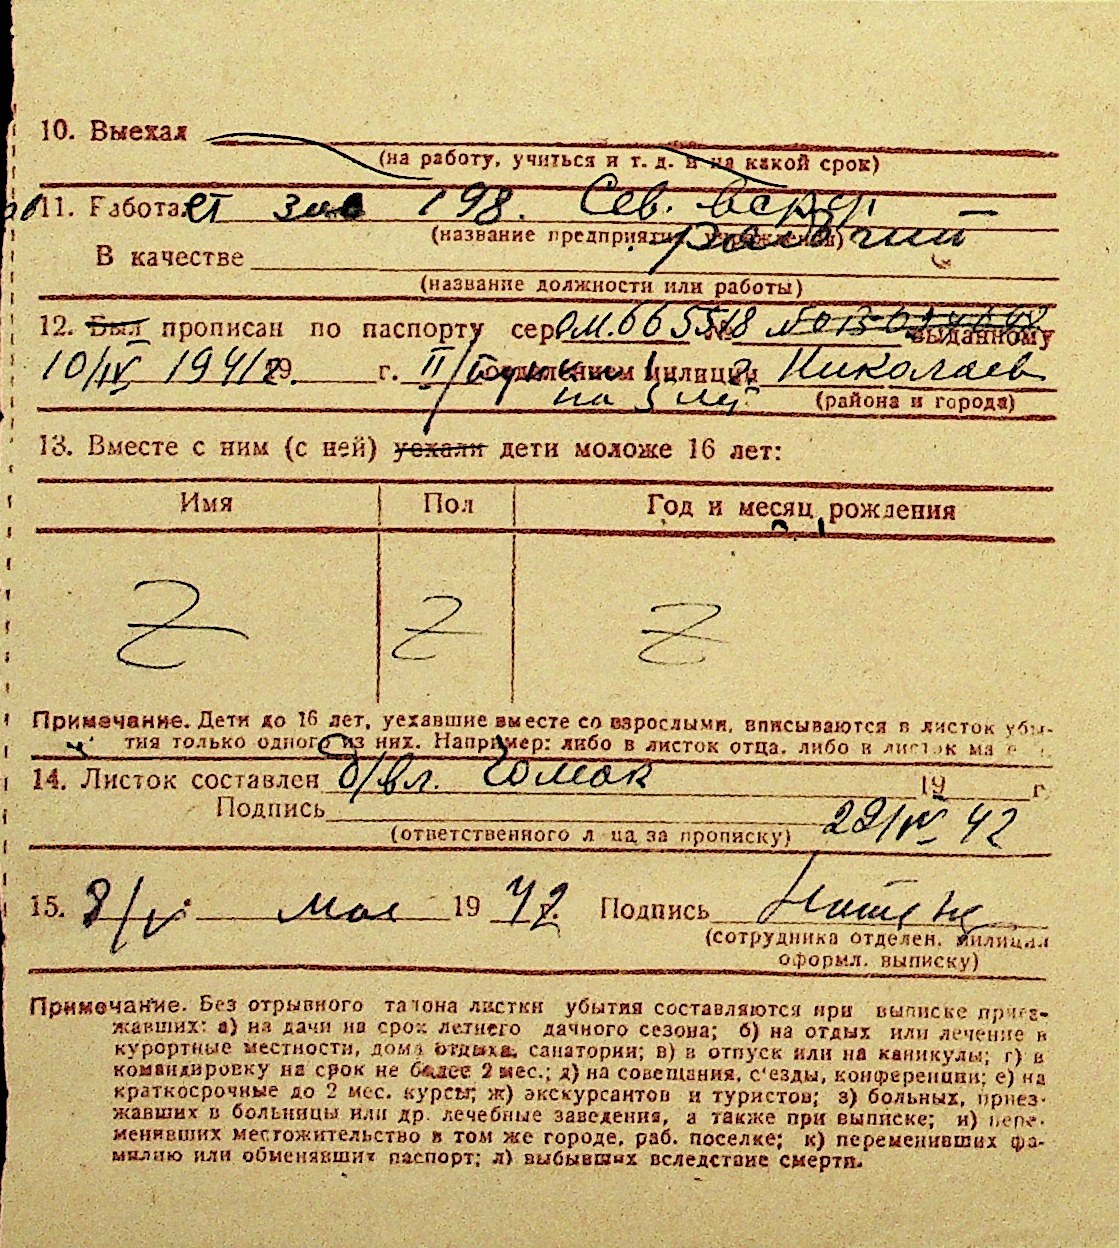 10. Выехал
(на работу, учиться и т. д. и на какой срок)
11. Работает 198. Сев.
(название предприятия, учреждения)
рабочий
В качестве
(название должности или работы)
12. Был прописан по паспорту сер № выданному
10/IV 1941 г. II/ отделением милиции г. Николаев
на 5 лет (района и города)
13. Вместе с ним (с ней) уехали дети моложе 16 лет:
Имя Пол Год и месяц рождения
Z Z Z
Примечание. Дети до 16 лет, уехавшие вместе со взрослыми, вписываются в листок убы-
тия только одного из них. Например: либо в листок отца, либо в листок ма
14. Листок составлен 19 г.
Подпись 29/IV 42
(ответственного лица за прописку)
15. 8/V мая 19 42 г. Подпись
(сотрудника отделен. милиции
оформл. выписку)
Примечание. Без отрывного талона листки убытия составляются при выписке приез-
жавших: а) на дачи на срок летнего дачного сезона; б) на отдых или лечение в
курортные местности, дома отдыха, санатории; в) в отпуск или на каникулы; г) в
командировку на срок не более 2 мес.; д) на совещания, с'езды, конференции; е) на
краткосрочные до 2 мес. курсы; ж) экскурсантов и туристов; з) больных, приез-
жавших в больницы или др. лечебные заведения, а также при выписке; и) пере-
менивших местожительство в том же городе, раб. поселке; к) переменивших фа-
милию или обменявших паспорт; л) выбывших вследствие смерти.